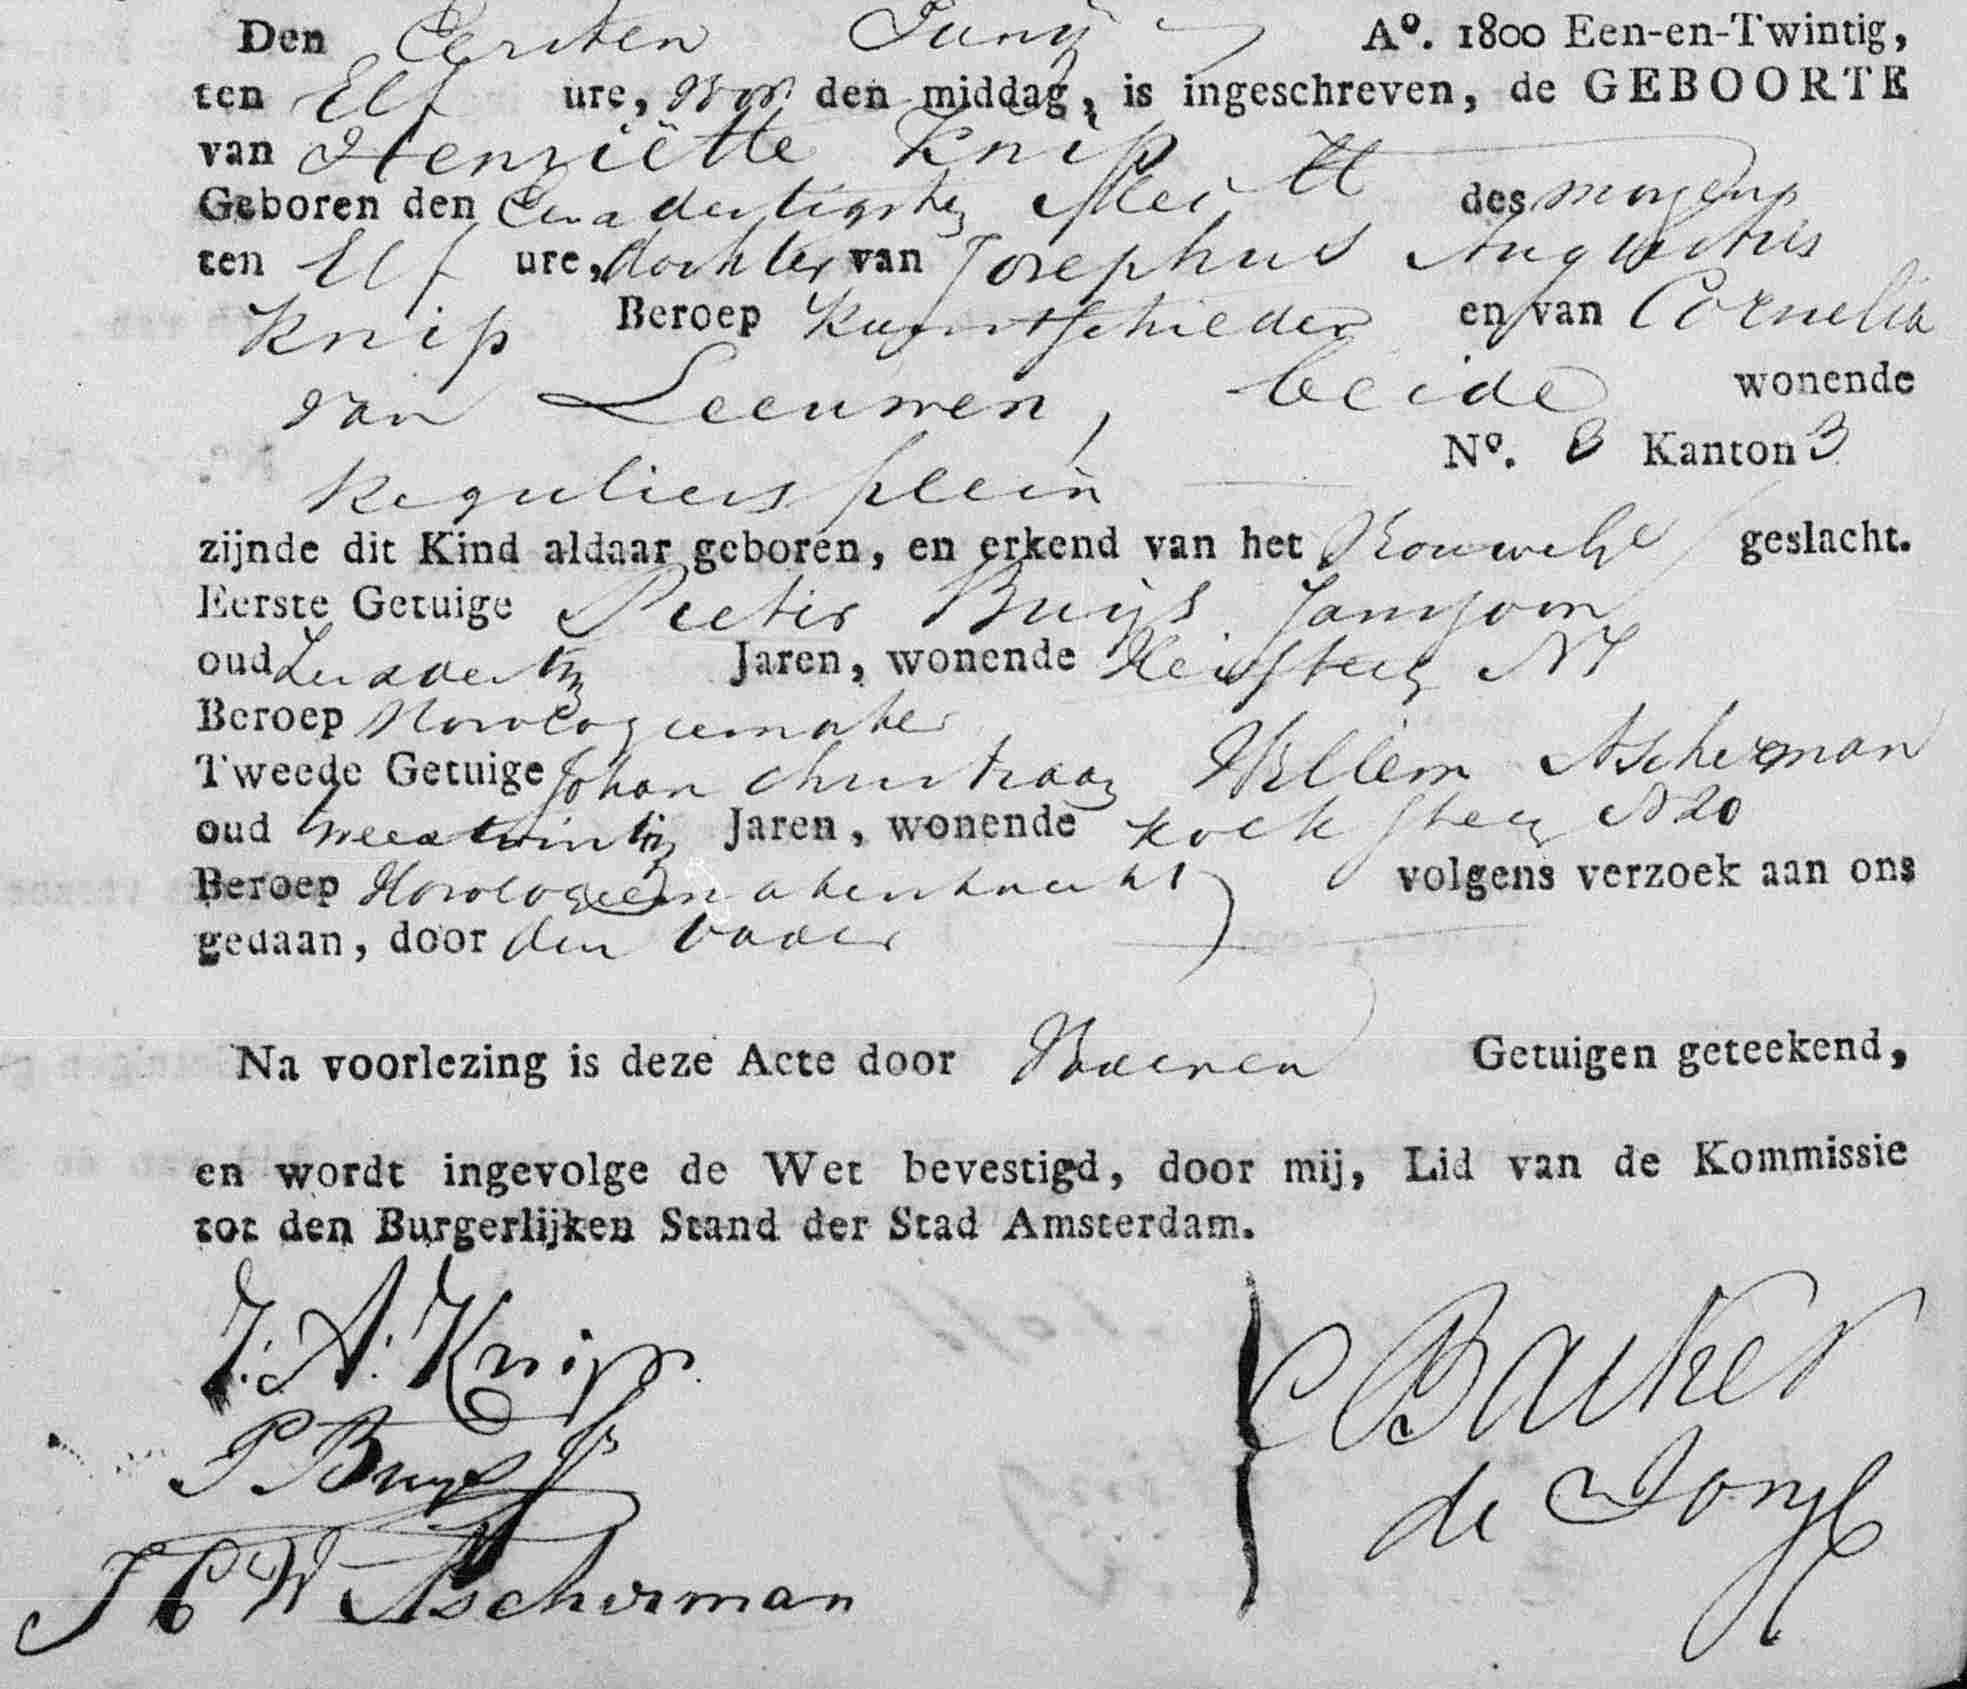 Den Eersten Junij A°. 1800 Een-en-Twintig,
ten Elf ure, voor den middag, is ingeschreven, de GEBOORTE
van Henriëtte Knip
Geboren den Eenadertigsten Mei ll des morgens
ten Elf ure, dochter van Josephus Augustus
Knip Beroep Kunstschilder en van Cornelia
van Leeuwen, beide wonende
N°. 8 Kanton 3
Reguliersplein
zijnde dit Kind aldaar geboren, en erkend van het Vrouwelijk geslacht.
Eerste Getuige Pieter Buijs Janszoon
oud Jaren, wonende N 7
Beroep Horologiemaker
Tweede Getuige Johan Christiaan Willem Ascherman
oud tweeatwintig Jaren, wonende N 20
Beroep Horologiemakersknecht volgens verzoek aan ons
gedaan, door den vader
Na voorlezing is deze Acte door Getuigen geteekend,
en wordt ingevolge de Wet bevestigd, door mij, Lid van de Kommissie
tot den Burgerlijken Stand der Stad Amsterdam.
J: A: Knip.
P Buys Jz
J C W Ascherman
C Backer
de Jonge